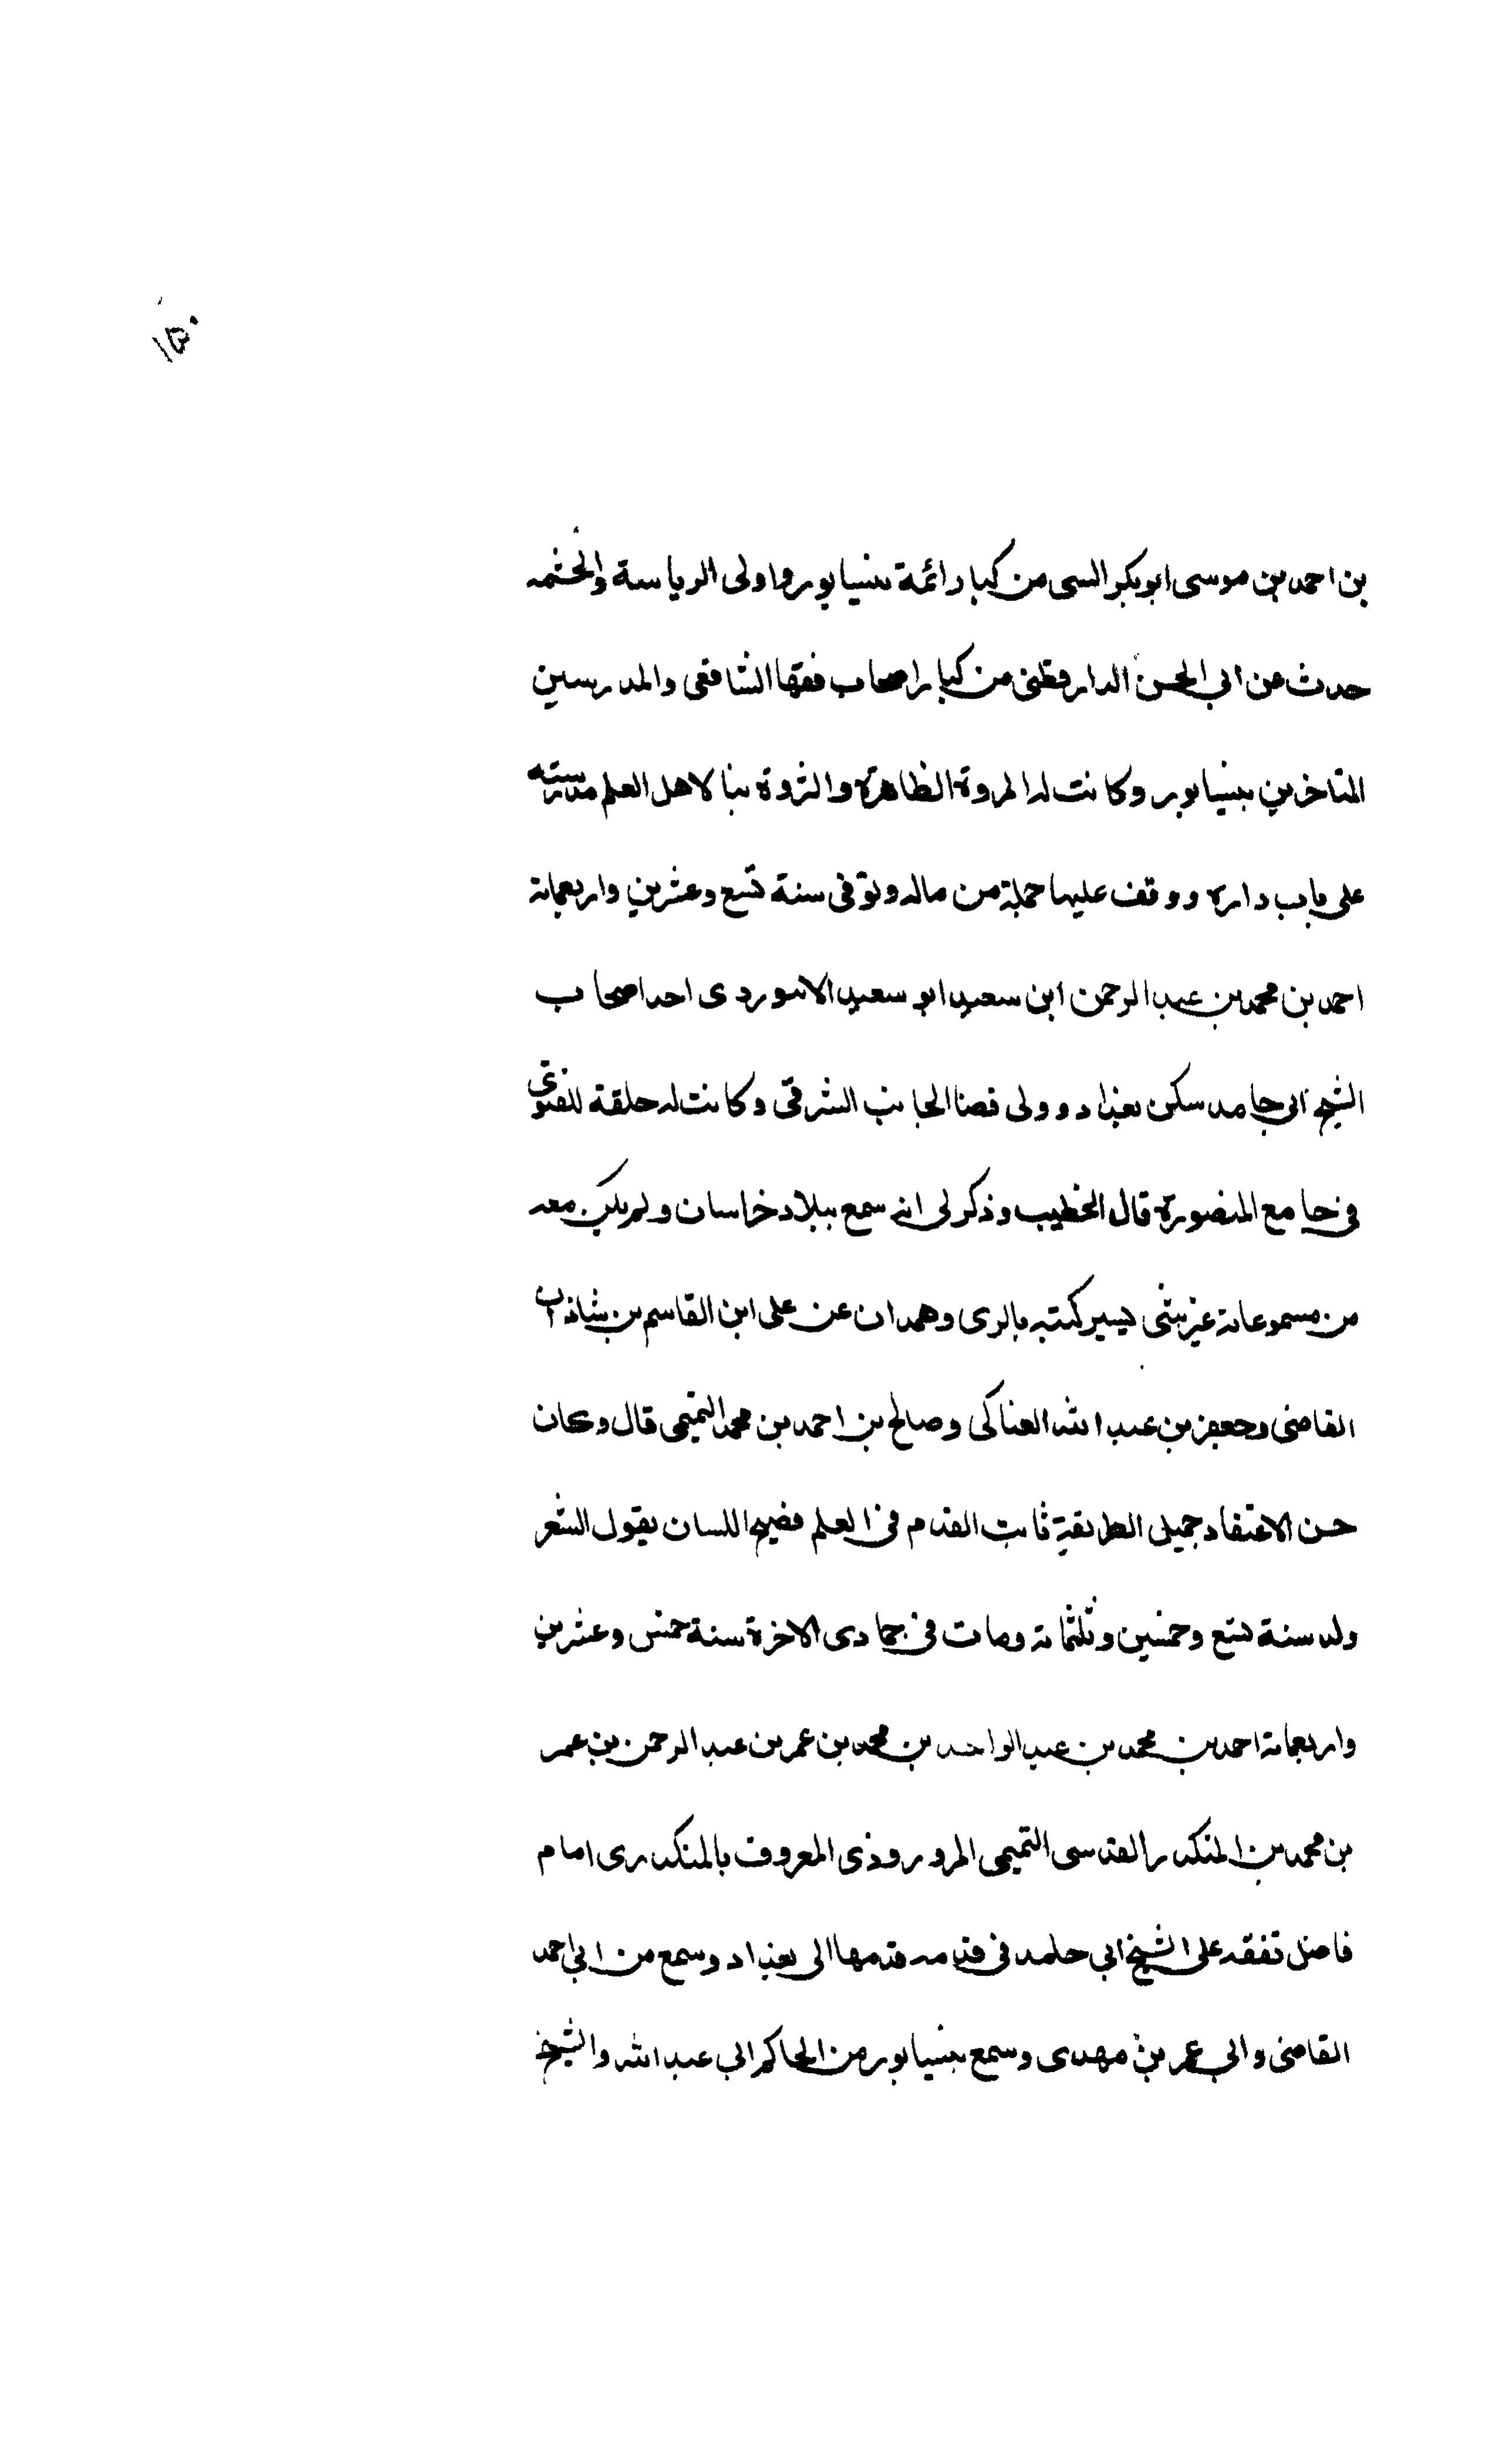 ١٥٠
بن احمد بن موسى ابو بكر السى من كبار ائمة بنيسابور واولى الرياسة والحشمه
حدث عن ابي الحسن الدارقطنى من كبار اصحاب فقها الشافعى والمدرسين
المتاخرين بنيسابور وكانت له المروة الظاهرة والثروة بنا لاهل العلم مدرسته
على باب داره ووقف عليها جملة من ماله وتوفى سنة تسع وعشرين واربعمانة
احمد بن محمد بن عبد الرحمن ابن سعيد ابو سعيد الابيوردى احد اصحاب
الشيخ ابى حامد سكن بغداد وولى قضا الجانب الشرقى وكانت له حلقة للفتوى
فى جامع المنصورة قال الخطيب وذكر لى انه سمع ببلاد خراسان ولم يكن معه
من مسموعاته غير شى يسير كتبه بالرى وهمدان عن على ابن القاسم بن شاذان
القاضى وجعفر بن عبد الله الفناكى وصالح بن احمد بن محمد التميمى قال وكان
حسن الاعتقاد جميل الطريقة ثابت القدم فى العلم فصيح اللسان يقول الشعر
ولد سنة تسع وخمسين وثلثمانة ومات فى جمادى الاخرة سنة خمس وعشرين
واربعمانة احمد بن محمد بن عبد الواحد بن محمد بن عمر بن عبد الرحمن بن عمر
بن محمد بن المنكدر القدسى التميمى المروروذى المعروف بالمنكدرى امام
فاضل تفقه على الشيخ ابي حامد فى قدمه قدمها الى بغداد وسمع من ابي احمد
القاضى وابي عمر بن مهدى وسمع بنيسابور من الحاكم ابي عبد الله والشيخ